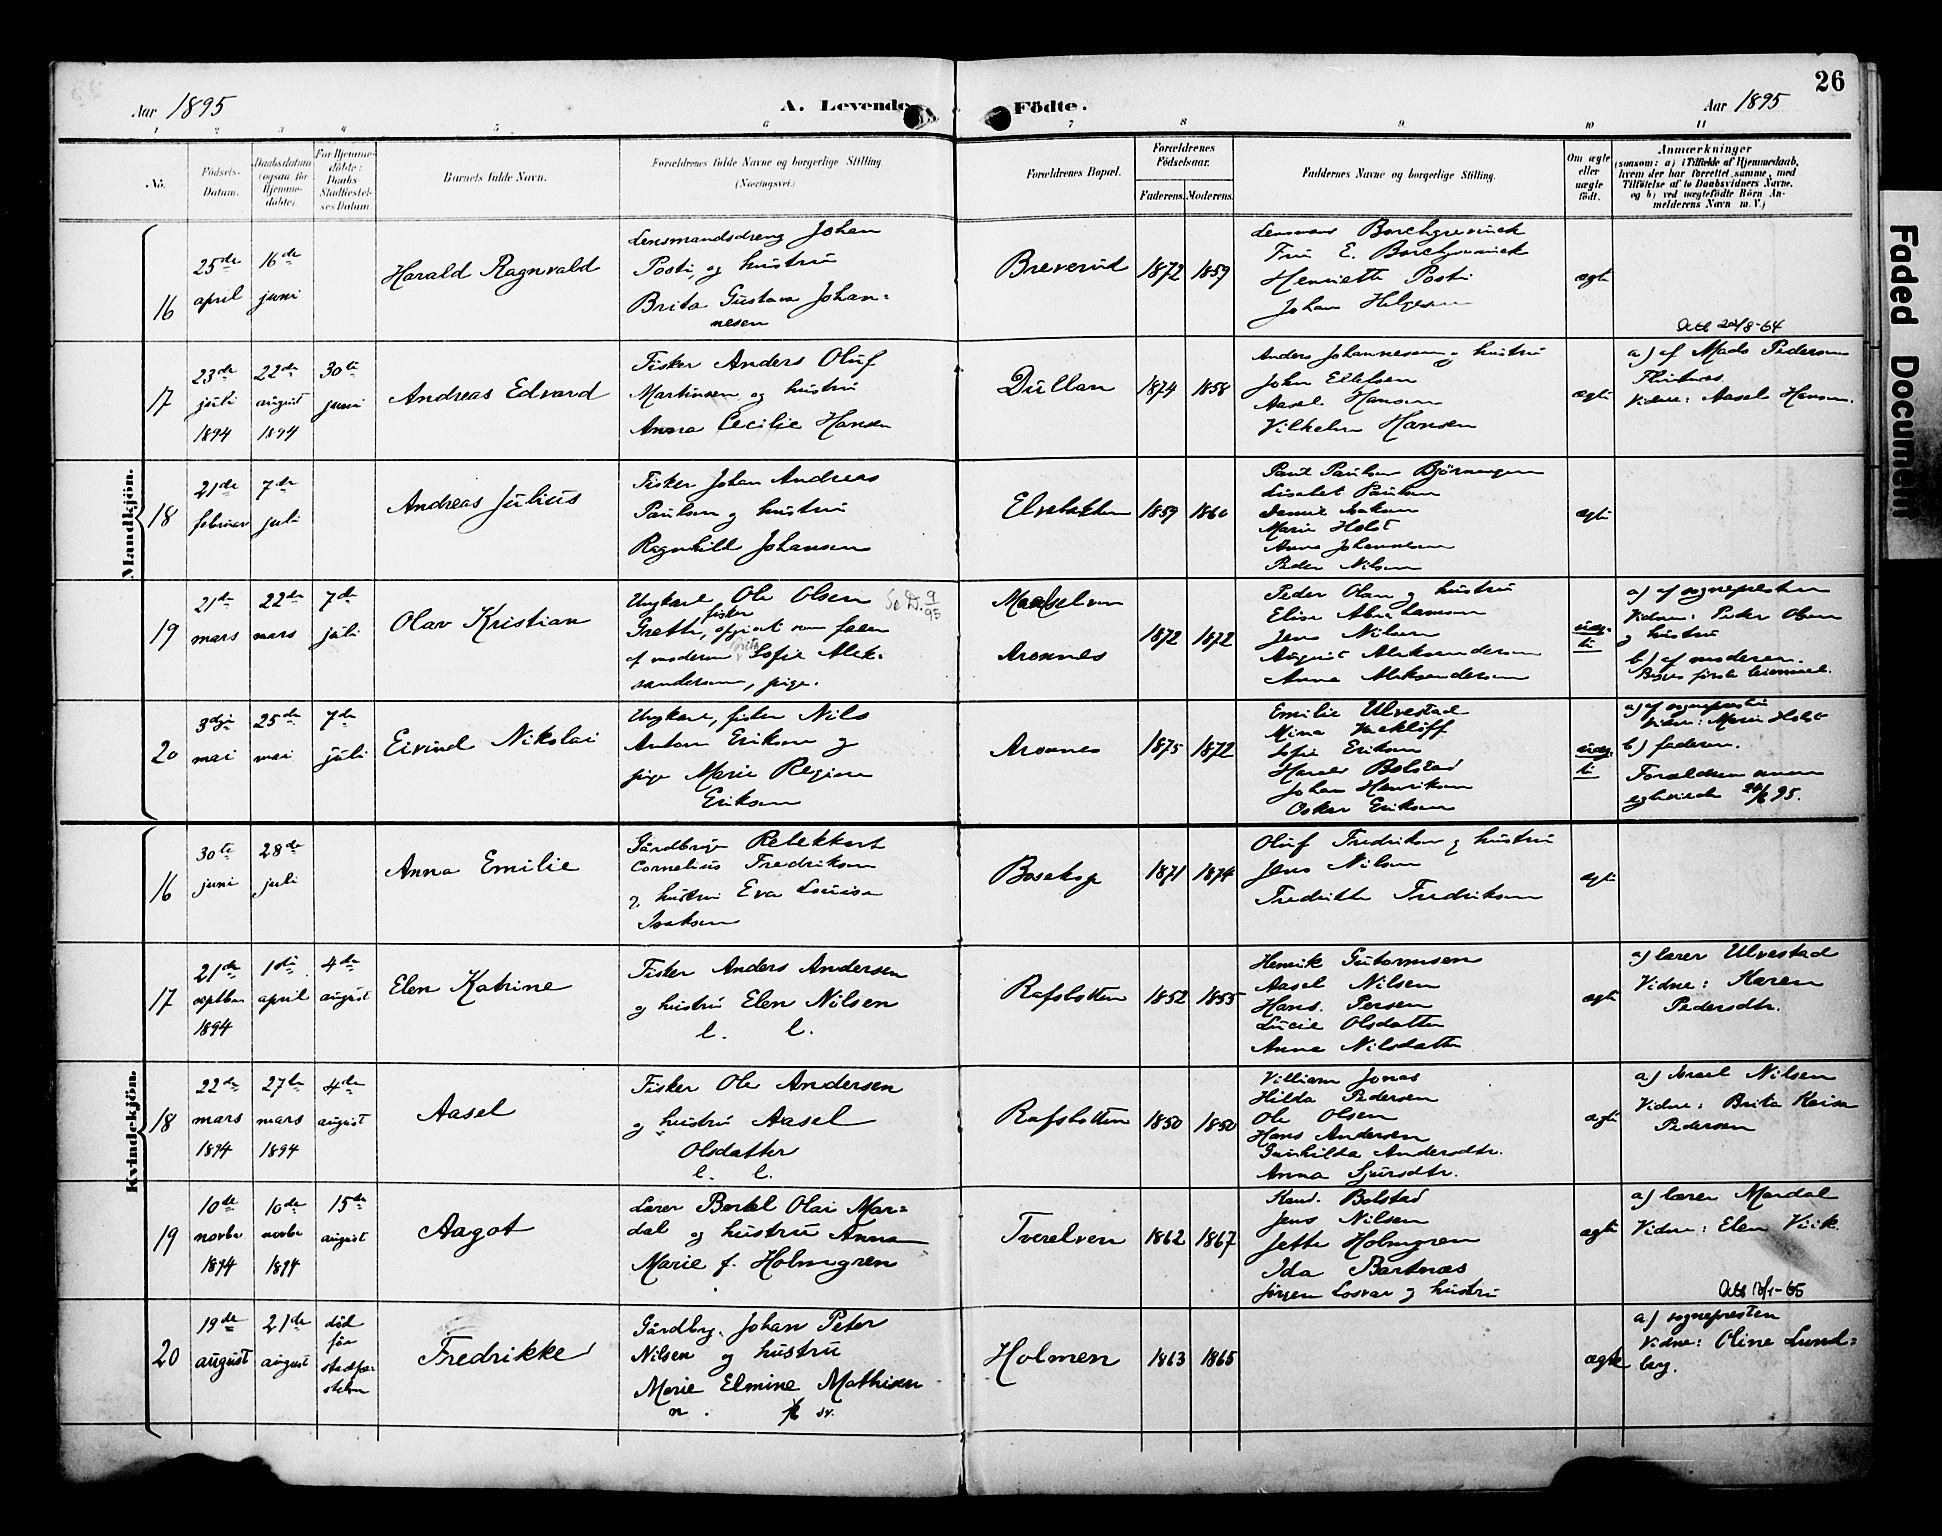 26
Aar 1895
A. Levende Födte.
Aar 1895
1 2 3 4 5 6 7 8 9 10 11
No.
Födsels-
Datum.
Daabsdatum
(ogsaa for
Hjemme-
döbte)
For Hjemme-
döbte:
Daabs-
Stadfæstel-
ses Datum
Barnets fulde Navn.
Forældrenes fulde Navne og borgerlige Stilling
(Næringsvei.)
Forældrenes Bopæl.
Forældrenes
Födselsaar.
Faderens. Moderens.
Faddernes Navne og borgerlige Stilling.
Om ægte
eller
uægte
födt.
Anmærkninger
(saasom: a) i Tilfælde af Hjemmedaab,
hvem der har forrettet samme, med
Tilföielse af to Daabsvidners Navne,
og b) ved uægtefödte Börn An-
melderens Navn m. V.)
Mandkjön.
16
25de
april
16de
juni
Harald Ragnvald
Lensmandsdreng Johan
Posti, og hustru
Brita Gustava Johan-
nesen
Breverud
1872 1859
Lensmand Borchgrevinck
Fru E. Borchgrevinck
Henriette Posti
Johan Helgesen
ægte
17
23de
juli
1894
22de
august
1894
30te
juni
Andreas Edvard
Fisker Anders Oluf
Martinsen og hustru
Anna Cecilie Hansen
Dullan
1874 1858
Anders Johannesen og hustru
John Ellefsen
Aasel Hansen
Vilhelm Hansen
ægte
Att 20/8-64
a) af Mads Pedersen
Vidne: Aasel Hansen.
18
21de
februar
7de
juli
Andreas Julius
Fisker Johan Andreas
Paulsen og hustru
Ragnhild Johansen
Elvebakken
1859 1860
Paul Paulsen
Lisabet Paulsen
Marie Holst
Anna Johannesen
Peder Nilsen
ægte
19
21de
mars
22de
mars
7de
juli
Olav Kristian
Ungkarl Ole Olsen
fisker
Grette, opgivet som fader
af moderen Sofie Alek-
sandersen, pige.
Se D. 9/95
Aronnes
1872 1872
Peder Olsen og hustru
Jens Nilsen
August Aleksandersen
Anna Aleksandersen
uæg-
te
a) af sognepresten
Vidne: Peder Olsen
og hustru
b) af moderen.
Begges förste leiermaal.
20
3dje
mai
25de
mai
7de
juli
Eivind Nikolai
Ungkarl, fisker Nils
Anton Eriksen og
pige Marie Regine
Eriksen
Aronnes
1875 1872
Emilie Ulvestad
Mina Kackloff
Sofie Eriksen
Harald Bolstad
Johan Henriksen
Oskar Eriksen
uæg-
te
a) af sognepresten
Vidne: Marie Holst
b) faderen.
Forældrene
egteviede 24/6 95.
Kvindekjön.
16
30te
juni
28de
juli
Anna Emilie
Gårdbruger Rebekkart
Cornelius Fredriksen
og hustru Eva Lovisa
Isaksen
Bosekop
1871 1874
Oluf Fredriksen og hustru
Jens Nilsen
Fredrikke Fredriksen
ægte
17
21de
septbr
1894
1ste
april
4de
august
Elen Katrine
Fisker Anders Andersen
og hustru Elen Nilsen
l. l.
Rafsbotten
1852 1855
Henrik Gutormsen
Aasel Nilsen
Hans Persen
Lucie Olsdatter
Anne Nilsdatter
ægte
a) lærer Ulvestad
Vidne: Karen
Pedersdtr.
18
22de
mars
1894
27de
mars
1894
4de
august
Aasel
Fisker Ole Andersen
og hustru Aasel
Olsdatter
l. l.
Rafsbotten
1850 1850
Villiam Jonas
Hilda Pedersen
Ole Olsen
Hans Andersen
Gunhilda Andersdtr.
Anna Sjursdtr.
ægte
a) Israel Nilsen
Vidne: Brita Kaisa
Pedersen
19
10de
novbr
1894
10de
novbr
1894
15de
august
Aagot
Lærer Bertel Olai Mar-
dal og hustru Anna
Marie f. Holmgren
Tverelven
1862 1867
Kand. Bolstad
Jens Nilsen
Jette Holmgren
Ida Bartnæs
Jörgen Losvar og hustru
ægte
a) lærer Mardal
Vidne: Elen Viik
20
19de
august
21de
august
död
för
stadfæ-
stelsen
Fredrikke
Gårdbrg. Johan Peter
Nilsen og hustru
Marie Elmine Mathisen
n. sv.
Holmen
1863 1865
ægte
a) sognepresten
Vidne: Oline Lund-
berg.
Faded Document